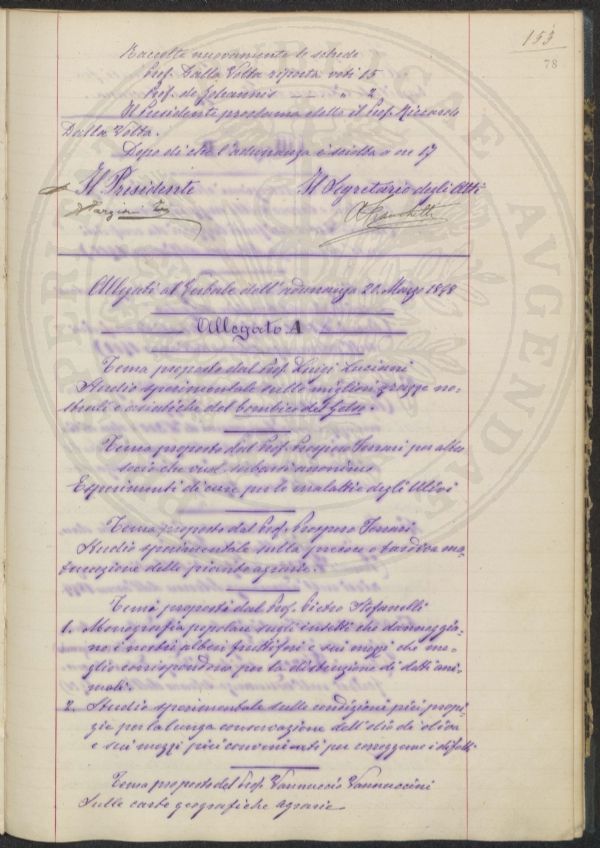 153
78
Raccolte nuovamente le schede
Prof. Dalla Volta riporta voti 15
Prof. de Johannis — " 2
Il Presidente proclama eletto il Prof. Riccardo
Dalla Volta.
Dopo di che l'adunanza è sciolta a ore 17
Il Presidente Il Segretario degli Atti
Allegati al Verbale dell'adunanza 20 Marzo 1898
Allegato A
Tema proposto dal Prof. Luigi Luciani
Studio sperimentale sulle migliori razze no-
strali e asiatiche del bombice del Gelso.
Tema proposto dal Prof. Prospero Ferrari per altro
socio che vuol serbarsi anonimo
Esperimenti di cure per le malattie degli Ulivi
Tema proposto dal Prof. Prospero Ferrari
Studio sperimentale sulla precoce o tardiva ma-
turazione delle piante agrarie.
Temi proposti dal Prof. Pietro Stefanelli
1. Monografia popolare sugli insetti che danneggia-
no i nostri alberi fruttiferi e sui mezzi che me-
glio corrispondono per la distruzione di detti ani-
mali.
2. Studio sperimentale sulle condizioni più propi-
zie per la lunga conservazione dell'olio di oliva
e sui mezzi più convenienti per correggerne i difetti
Tema proposto del Prof. Vannuccio Vannuccini
Sulle carte geografiche agrarie